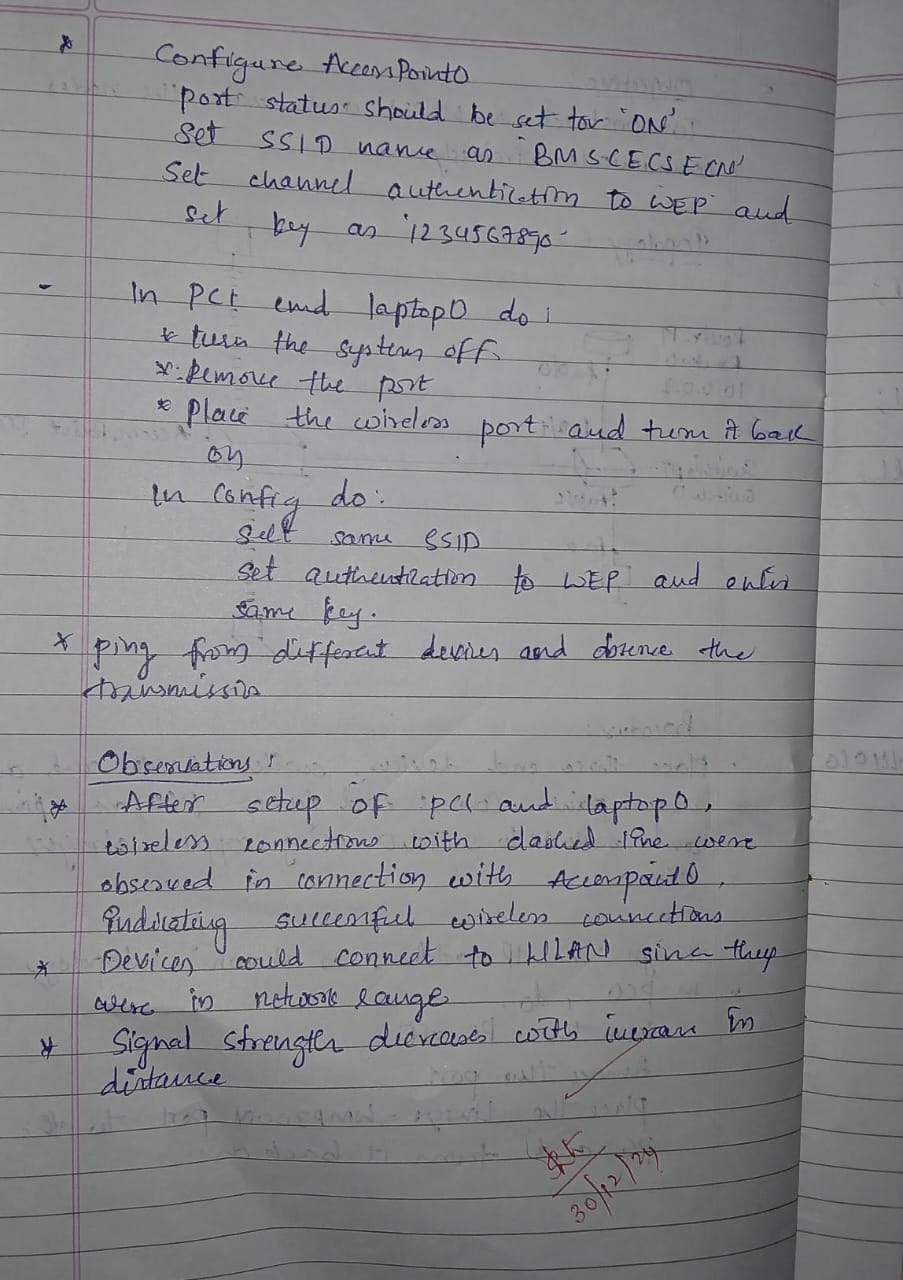 * Configure AccessPoint0
port status should be set for 'ON'
Set SSID name as 'BMSCECSECN'
Set channel authentication to WEP and
set key as '1234567890'
- In PC1 and laptop0 do:
* turn the system off.
* Remove the port
* Place the wireless port and turn it back
on
In Config do:
Set same SSID
Set authentication to WEP and enter
same key.
* ping from different devices and observe the
transmission
Observations:
* After setup of PC1 and laptop0,
wireless connections with dashed line were
observed in connection with Accesspoint0,
indicating successful wireless connections
* Devices could connect to WLAN since they
were in network range
* Signal strength decreases with increase in
distance
30/12/24